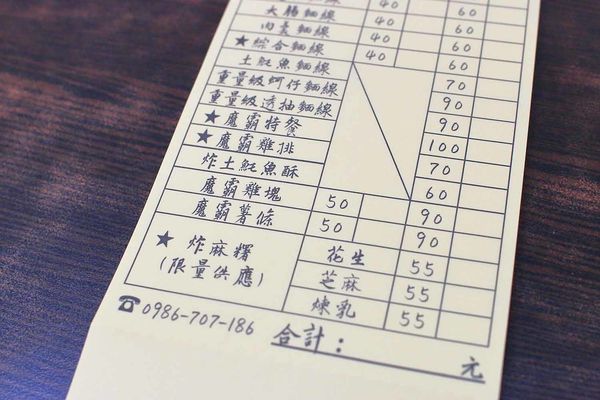 40 60
大腸麵線 40 60
肉羹麵線 40 60
★綜合麵線 40 60
土魠魚麵線 70
重量級蚵仔麵線 90
重量級透抽麵線 90
★魔霸特餐 100
★魔霸雞排 70
炸土魠魚酥 60
魔霸雞塊 50 90
魔霸薯條 50 90
★炸麻糬
(限量供應)
花生 55
芝麻 55
煉乳 55
☎0986-707-186
合計: 元